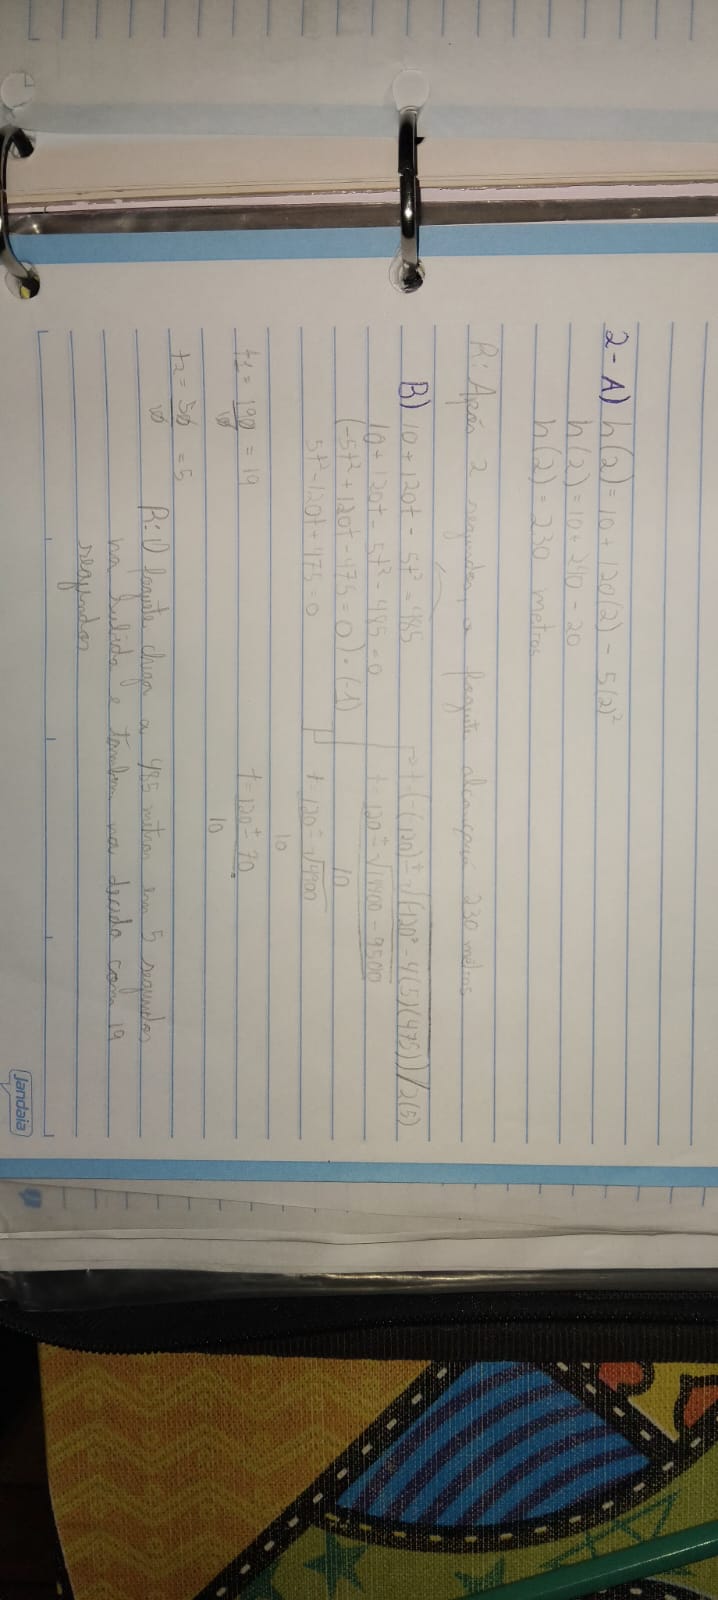 2 - A) h(2) = 10 + 120(2) - 5(2)²
h(2) = 10 + 240 - 20
h(2) = 230 metros
R: Após 2 segundos, o foguete alcançará 230 metros
B) 10 + 120t - 5t² = 485
10 + 120t - 5t² - 485 = 0
(-5t² + 120t - 475 = 0) · (-1)
5t² - 120t + 475 = 0
t = (-(-120) ± √(-120² - 4(5)(475)) / 2(5)
t = 120 ± √14400 - 9500
10
t = 120 ± √4900
10
t = 120 ± 70
10
t1 = 190 = 19
10
t2 = 50 = 5
10
R: O foguete chega a 485 metros em 5 segundos
na subida e também na decida com 19
segundos
Jandaia